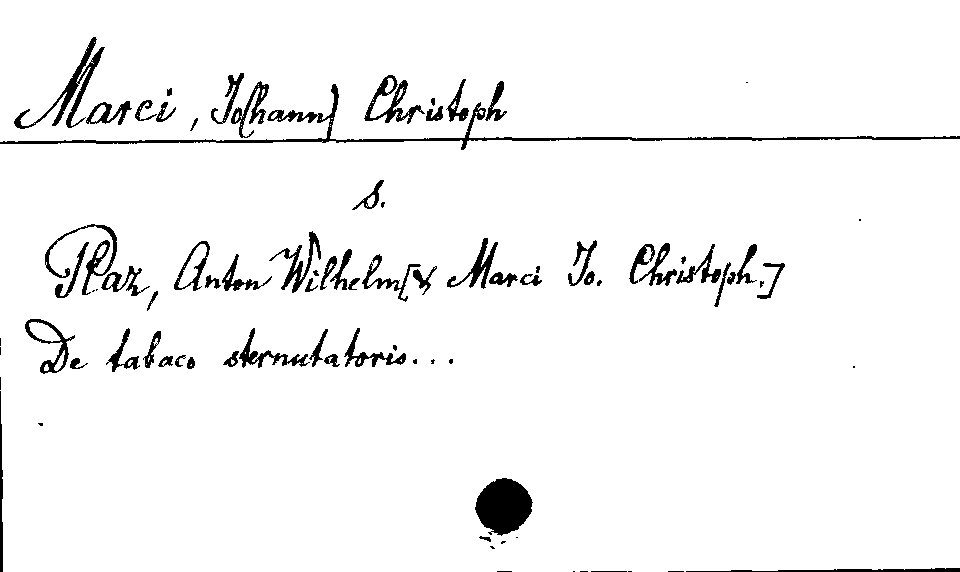 Marci, Jo[hann] Christoph
s.
Plaz, Anton Wilhelm [& Marci Jo. Christoph.]
De tabaco sternutatorio...